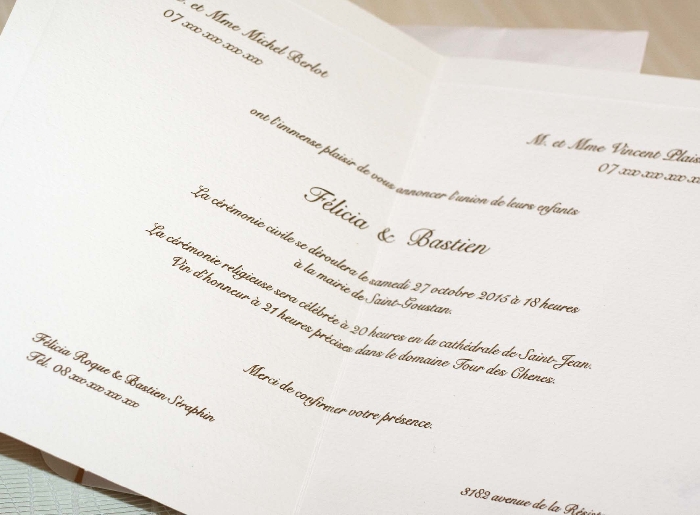 et Mme Michel Berlot
07 xxx xxx xxx xxx
M. et Mme Vincent
07 xxx xxx xxx
ont l'immense plaisir de vous annoncer l'union de leurs enfants
Félicia & Bastien
La cérémonie civile se déroulera le samedi 27 octobre 2015 à 18 heures
à la mairie de Saint-Goustan.
La cérémonie religieuse sera célébrée à 20 heures en la cathédrale de Saint-Jean.
Vin d'honneur à 21 heures précises dans le domaine Tour des Chenes.
Merci de confirmer votre présence.
Félicia Roque & Bastien Séraphin
Tél. 08 xxx xxx xxx xxx
3182 avenue de la